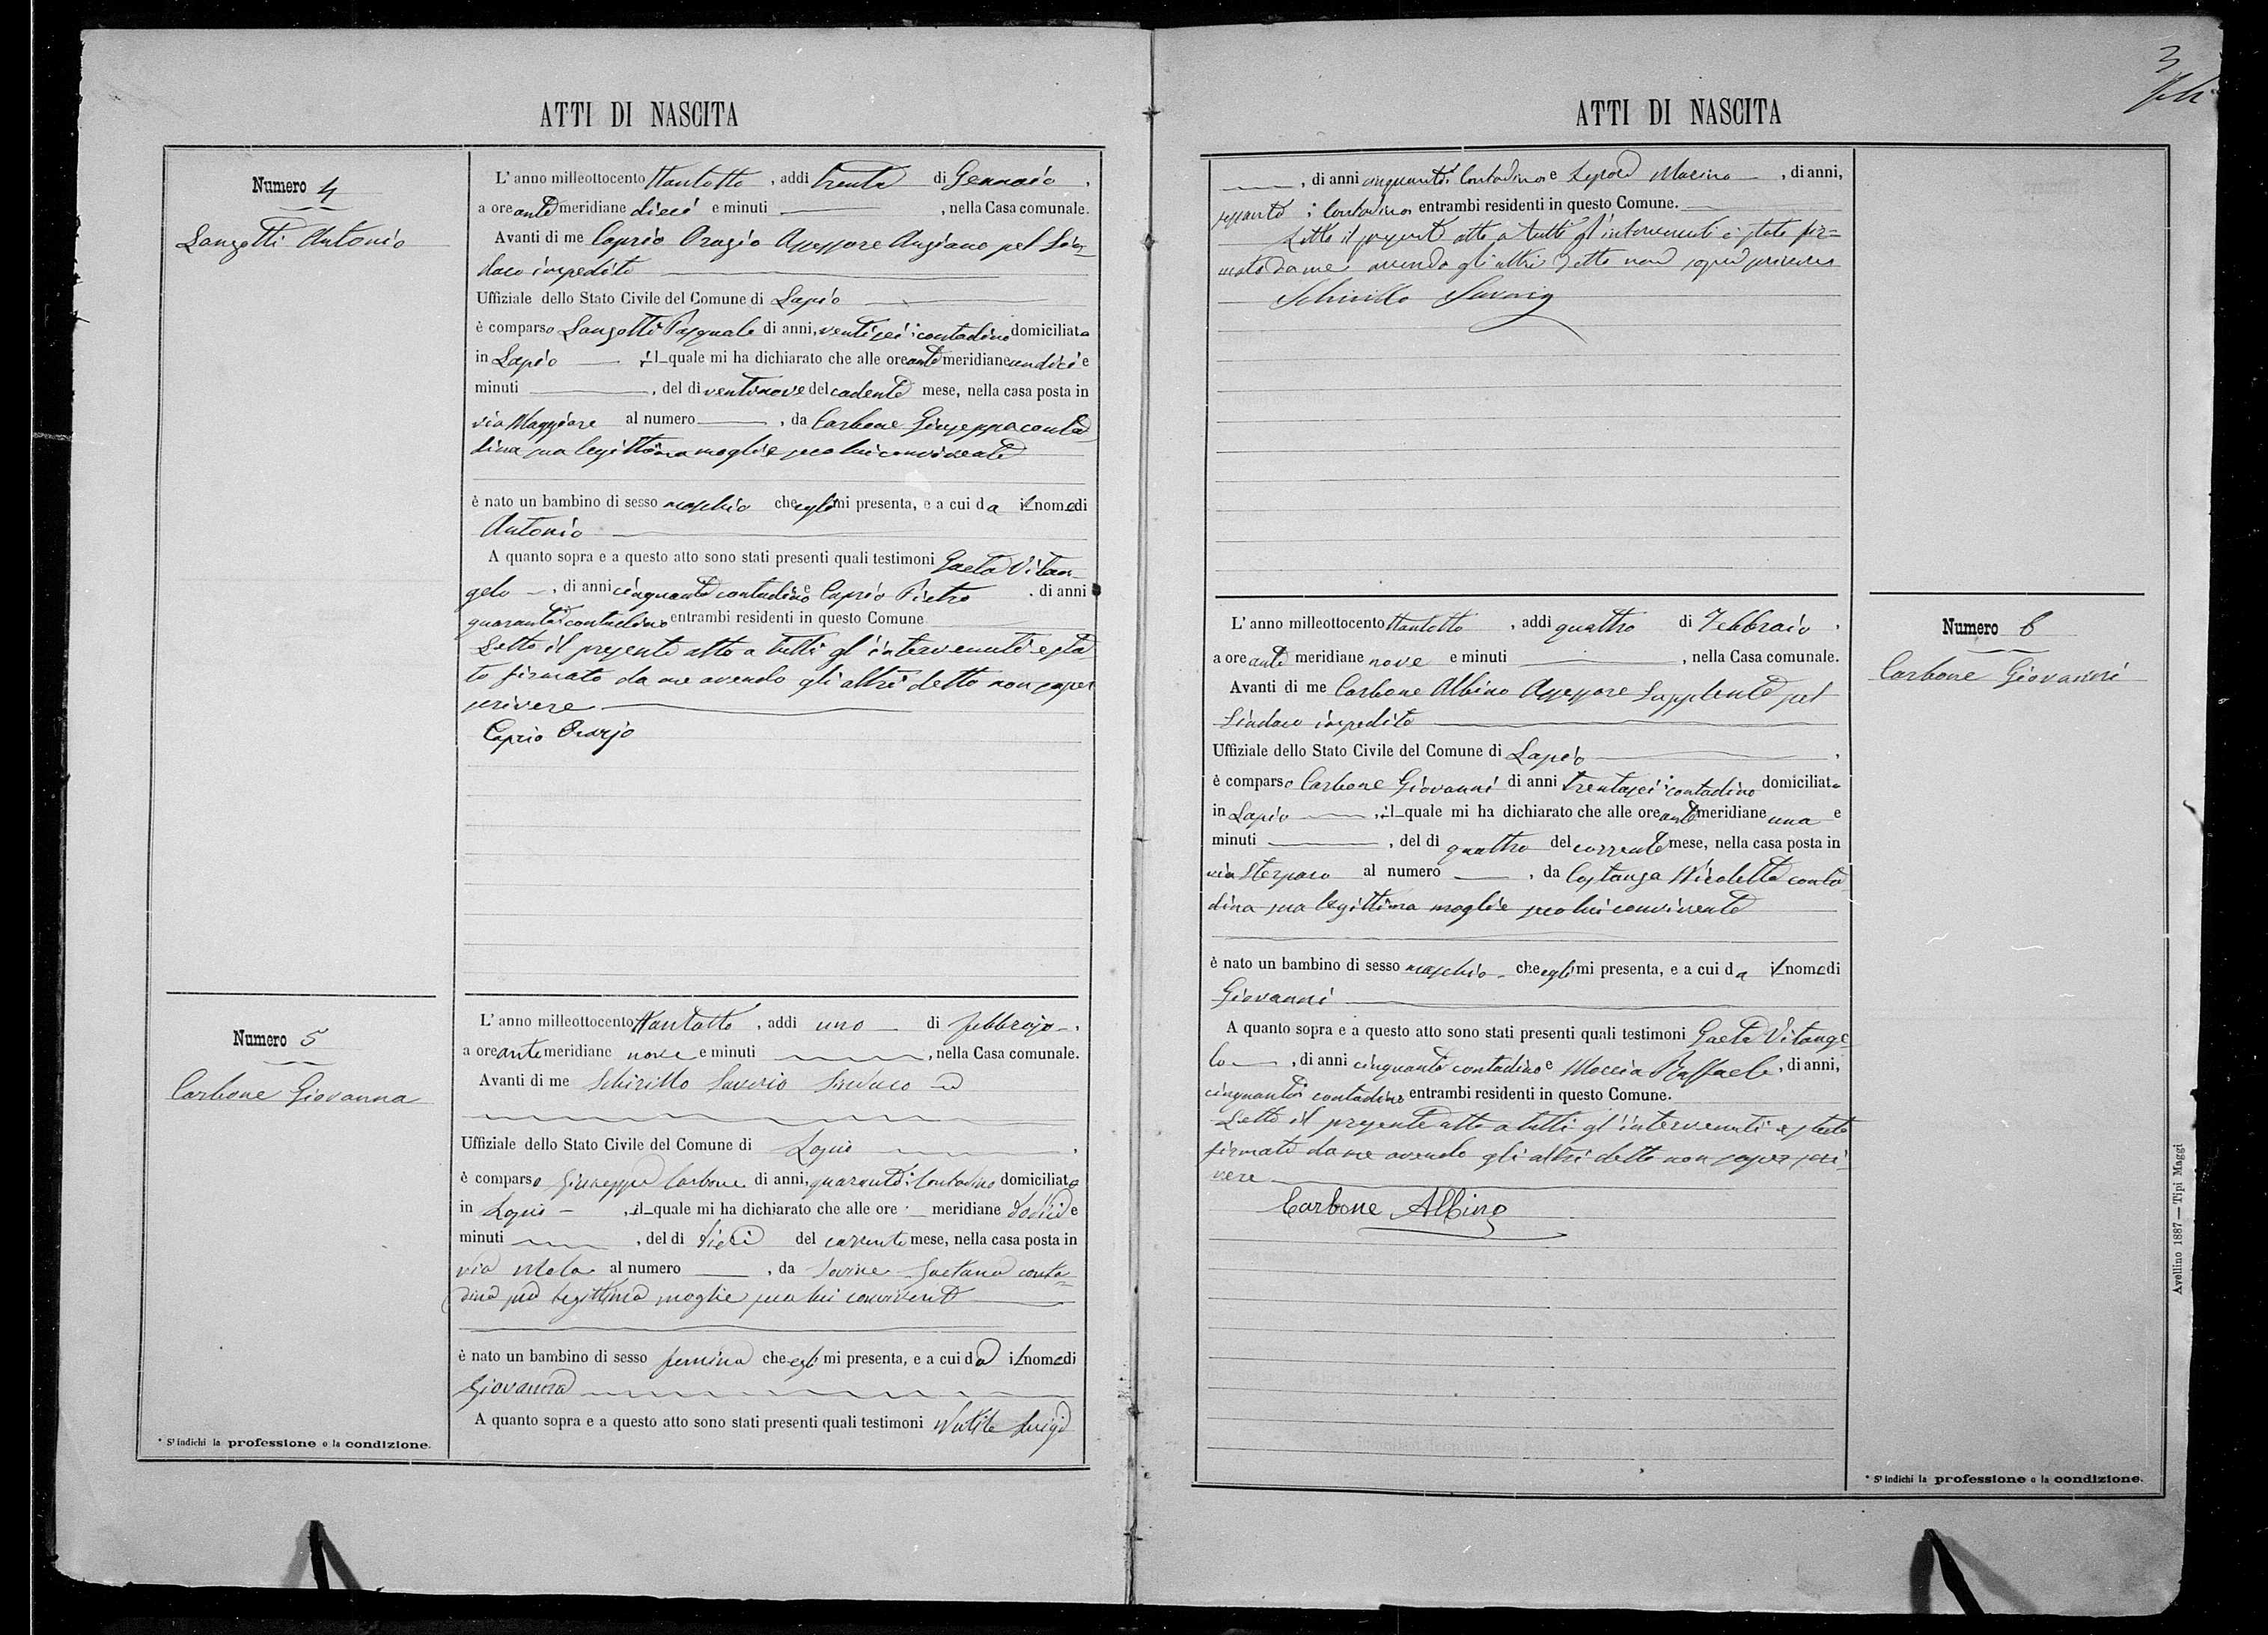 ATTI DI NASCITA
Numero 4
Lanzotti Antonio
L'anno milleottocento ttantotto, addi trenta di Gennaio,
a ore ante meridiane dieci e minuti, nella Casa comunale.
Avanti di me Caprio Orazio Assessore Anziano pel Sin-
daco impedito
Uffiziale dello Stato Civile del Comune di Lapio
è comparso Lanzotti Pasquale di anni, ventisei contadino domiciliato
in Lapio, il quale mi ha dichiarato che alle ore ante meridiane undici e
minuti, del di ventinove del cadente mese, nella casa posta in
via Maggiore al numero, da Carbone Giuseppa conta
dina sua legittima moglie seco lui convivente
è nato un bambino di sesso maschio che egli mi presenta, e a cui da il nome di
Antonio
A quanto sopra e a questo atto sono stati presenti quali testimoni Gaeta Vitan-
gelo, di anni cinquanta contadino e Caprio Pietro, di anni
quaranta contadino entrambi residenti in questo Comune
Letto il presente atto a tutti gl'intervenuti e sta
to firmato da me avendo gli altri detto non saper
scrivere
Caprio Orazio
Numero 5
Carbone Giovanna
L'anno milleottocento ttantotto, addi uno di febbrajo,
a ore ante meridiane nove e minuti, nella Casa comunale.
Avanti di me Schirillo Saverio Sindaco
Uffiziale dello Stato Civile del Comune di Lapio
è comparso Giuseppe Carbone di anni, quaranta contadino domiciliato
in Lapio, il quale mi ha dichiarato che alle ore meridiane dodici e
minuti, del di del corrente mese, nella casa posta in
via Mela al numero, da Iovine Gaetana conta-
dina sua legittima moglie seco lui convivente
è nato un bambino di sesso femina che egli mi presenta, e a cui da il nome di
Giovanna
A quanto sopra e a questo atto sono stati presenti quali testimoni Luigi
* S'indichi la professione o la condizione.
3
ATTI DI NASCITA
, di anni cinquanta contadino e Marino, di anni,
sessanta contadino entrambi residenti in questo Comune.
Letto il presente atto a tutti gl'intervenuti è stato fir=
mato da me avendo gli altri detto non sapere scrivere
Schirillo Saverio
Numero 6
Carbone Giovanni
L'anno milleottocento ttantotto, addi quattro di Febbraio,
a ore ante meridiane nove e minuti, nella Casa comunale.
Avanti di me Carbone Albino Assessore Supplente pel
Sindaco impedito
Uffiziale dello Stato Civile del Comune di Lapio
è comparso Carbone Giovanni di anni trentasei contadino domiciliato
in Lapio, il quale mi ha dichiarato che alle ore ante meridiane una e
minuti, del di quattro del corrente mese, nella casa posta in
via Sterparo al numero, da Costanza Nicoletta conta
dina sua legittima moglie seco lui convivente
è nato un bambino di sesso maschio che egli mi presenta, e a cui da il nome di
Giovanni
A quanto sopra e a questo atto sono stati presenti quali testimoni Gaeta Vitange
lo, di anni cinquanta contadino e Moccia Raffaele, di anni,
cinquanta contadino entrambi residenti in questo Comune.
Letto il presente atto a tutti gl'intervenuti e stato
firmato da me avendo gli altri detto non saper scri
vere
Carbone Albino
* S'indichi la professione o la condizione.
Avellino 1887 — Tipi Maggi